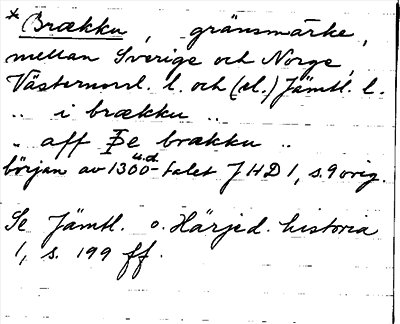 *Brækku, gränsmärke,
mellan Sverige och Norge,
Västernorrl. l. och (el.) Jämtl. l.
"  i brækku  "
"  aff Þe brækku  "
u.d.
början av 1300-talet JHD 1, s. 9 orig.
Se Jämtl. o. Härjed. historia
1, s. 199 ff.